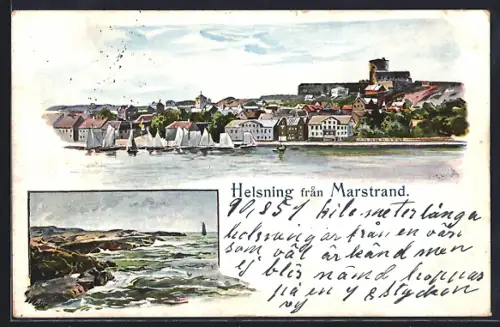 Helsning från Marstrand.
90,851 kilometerlånga
helsningar från en vän
som väl är känd men
ej blir nämd hoppas
på en